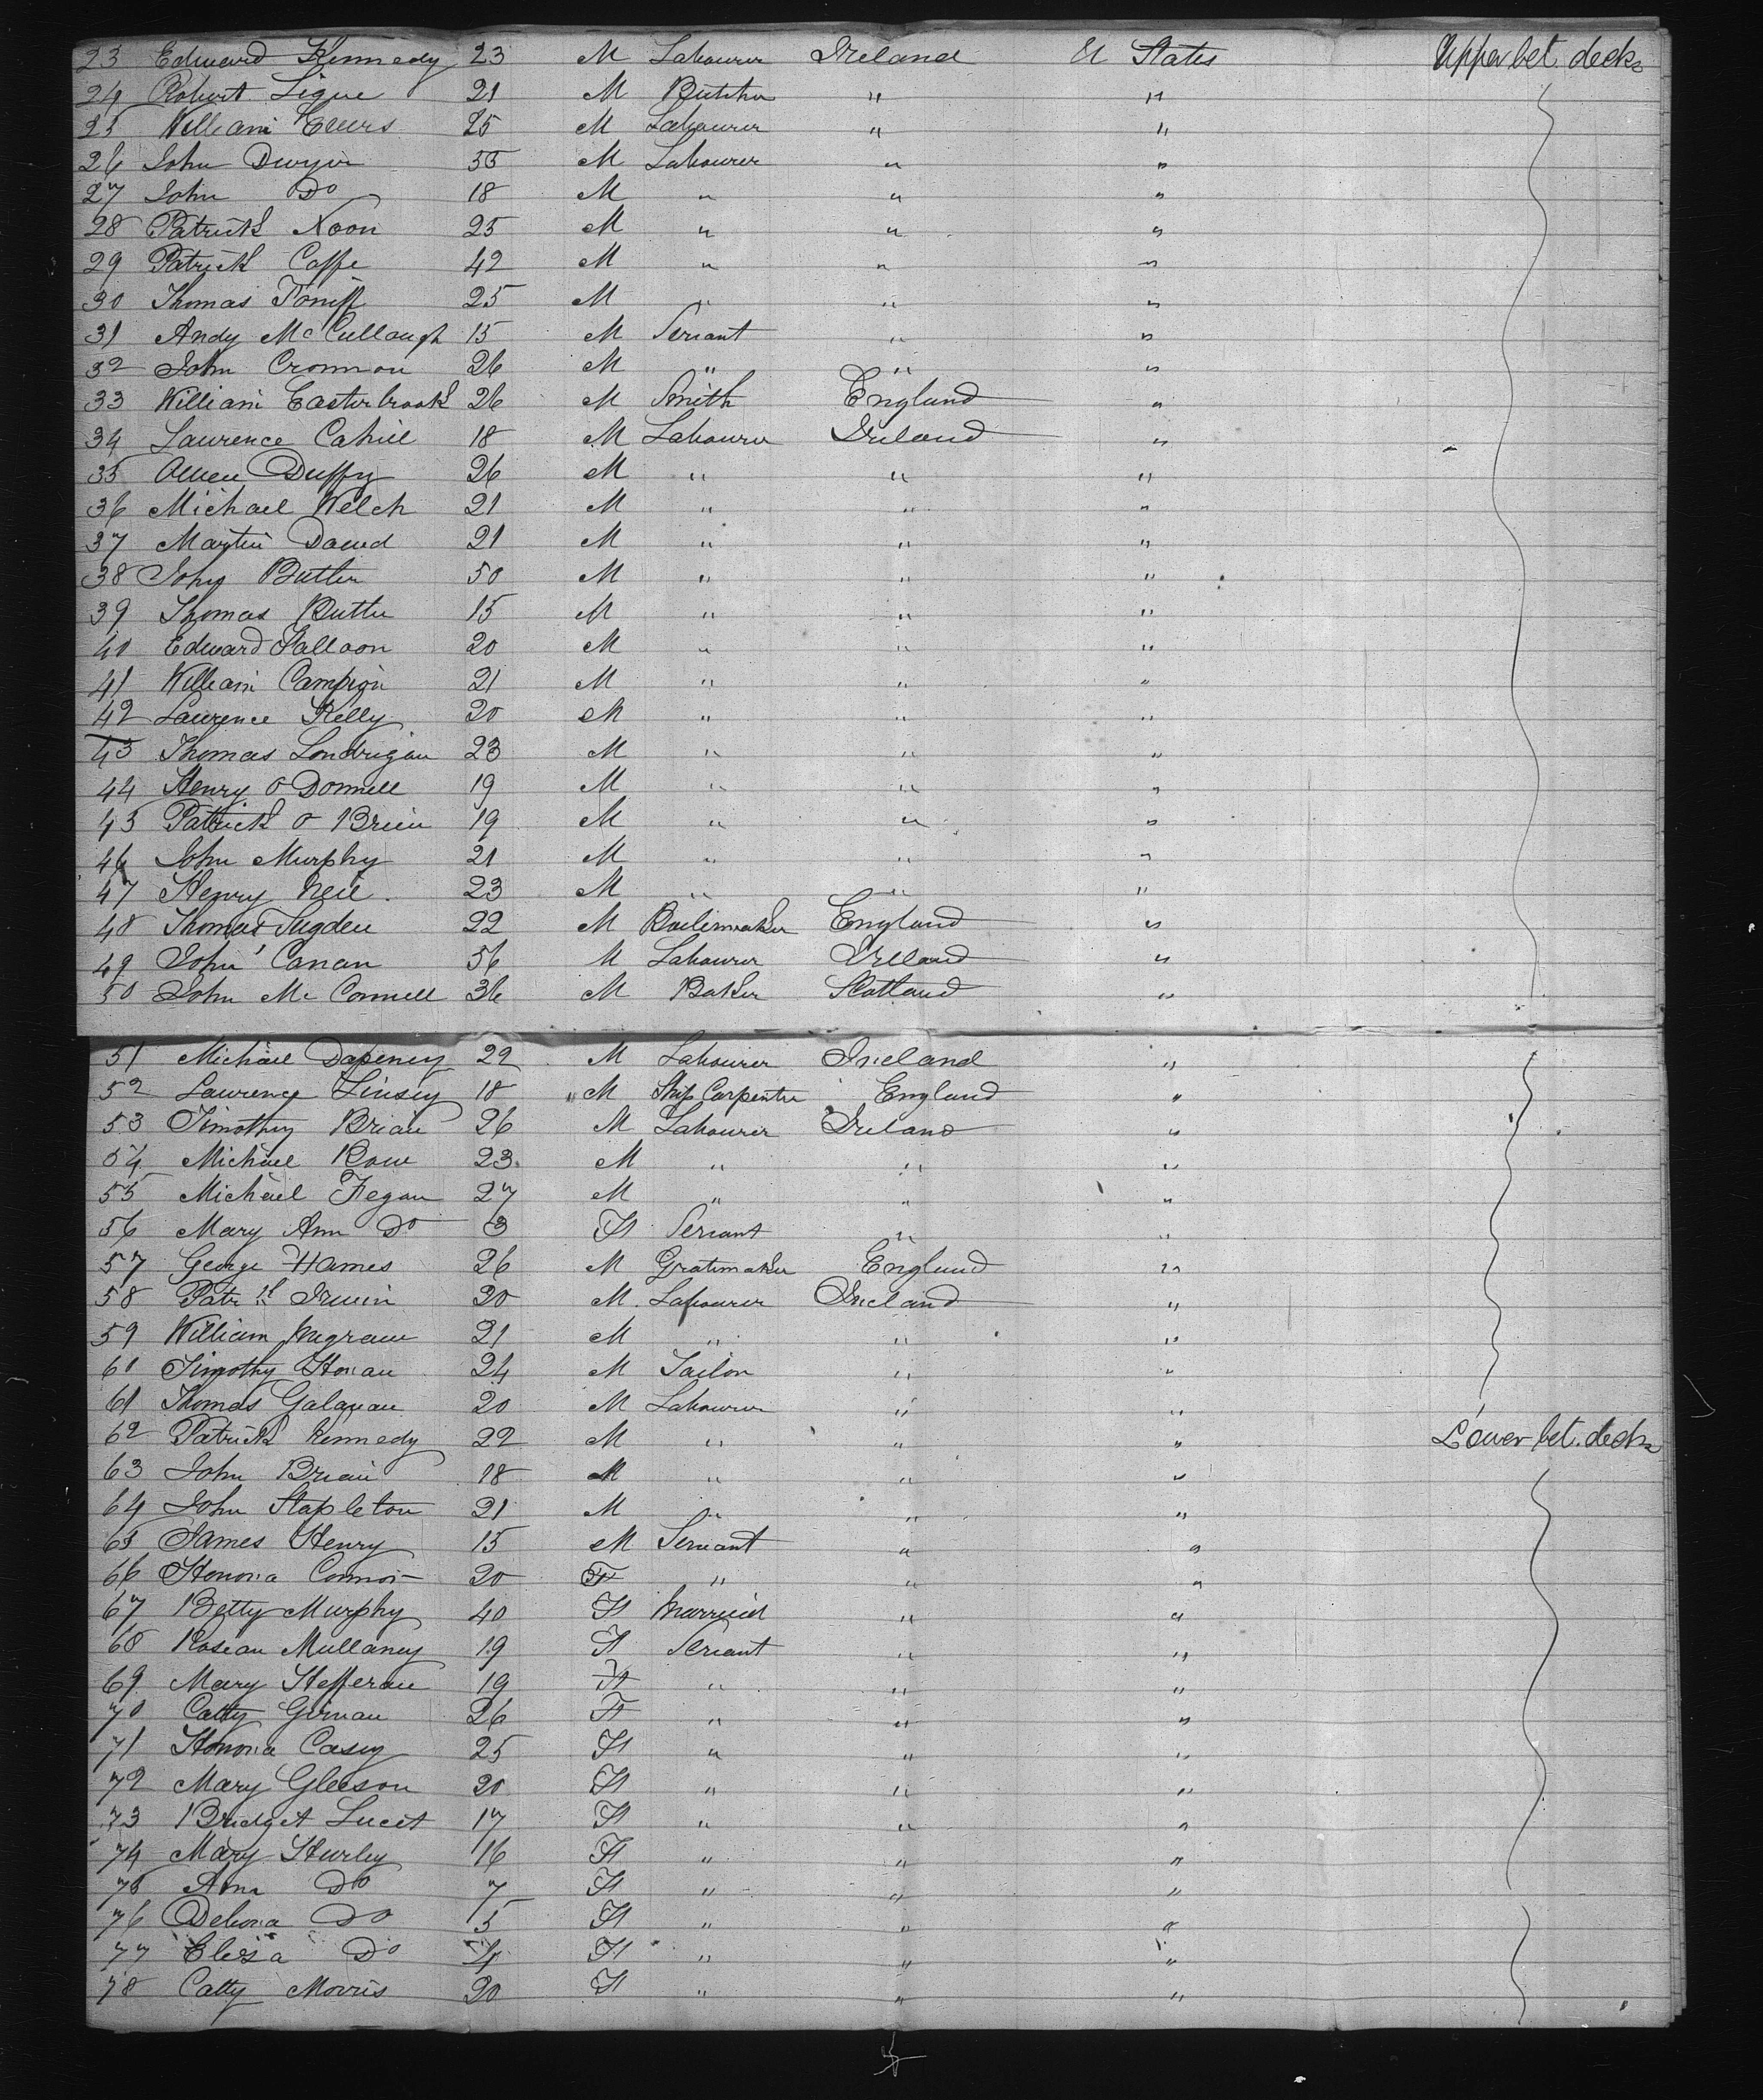 23 Edward Kennedy 23 M Labourer Ireland U States Upper bet. decks
24 Robert Ligue 21 M Butcher " "
25 William Ellers 25 M Labourer " "
26 John Dwyer 55 M Labourer " "
27 John Do 18 M " " "
28 Patrick Noon 25 M " " "
29 Patrick Caffe 42 M " " "
30 Thomas 25 M " " "
31 Andy McCullough 15 M Servant " "
32 John Cronnon 26 M " " "
33 William Easterbrook 26 M Smith England "
34 Laurence Cahill 18 M Labourer Ireland "
35 Owen Duffy 26 M " " "
36 Michael Welch 21 M " " "
37 Martin 21 M " " "
38 John Butler 50 M " " "
39 Thomas Butler 15 M " " "
40 Edward Falloon 20 M " " "
41 William Campion 21 M " " "
42 Laurence Kelly 20 M " " "
43 Thomas Londrigan 23 M " " "
44 Henry O Donnell 19 M " " "
45 Patrick O Brien 19 M " " "
46 John Murphy 21 M " " "
47 Henry Neil 23 M " " "
48 Thomas Sugden 22 M Boilermaker England "
49 John Canan 56 M Labourer Ireland "
50 John Mc Connell 36 M Baker Scotland "
51 Michael Dapeney 22 M Labourer Ireland "
52 Lawrence Linsey 18 " M Ship Carpenter England "
53 Timothy Brian 26 M Labourer Ireland "
54 Michael Rowe 23 M " " "
55 Michael Fegan 27 M " " "
56 Mary Ann Do 3 F Servant " "
57 George Hames 26 M Gratemaker England "
58 Patrck Irwin 20 M Labourer Ireland "
59 William 21 M " " "
60 Timothy Honan 24 M Tailor " "
61 Thomas Galavan 20 M Labourer " "
62 Patrick Kennedy 22 M " " " Lower bet. decks
63 John Brian 18 M " " "
64 John Stapleton 21 M " " "
65 James Henry 15 M Servant " "
66 Honora Connor 20 F " " "
67 Betty Murphy 40 F Married " "
68 Rosean Mullaney 19 F Servant " "
69 Mary Hefferan 19 F " " "
70 Catty Girnan 26 F " " "
71 Honora Casey 25 F " " "
72 Mary Gleeson 20 F " " "
73 Bridget Lucet 17 F " " "
74 Mary Hurley 16 F " " "
75 Ann Do 7 F " " "
76 Debora Do 5 F " " "
77 Eliza Do 4 F " " "
78 Catty Morris 20 F " " "